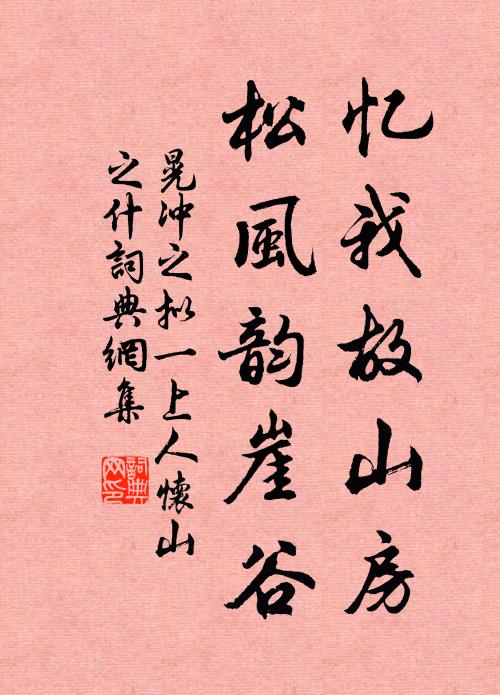 忆我故山房
松風韵崖谷
晃冲之拟一上人懷山
之什詞典網集
詞典网印